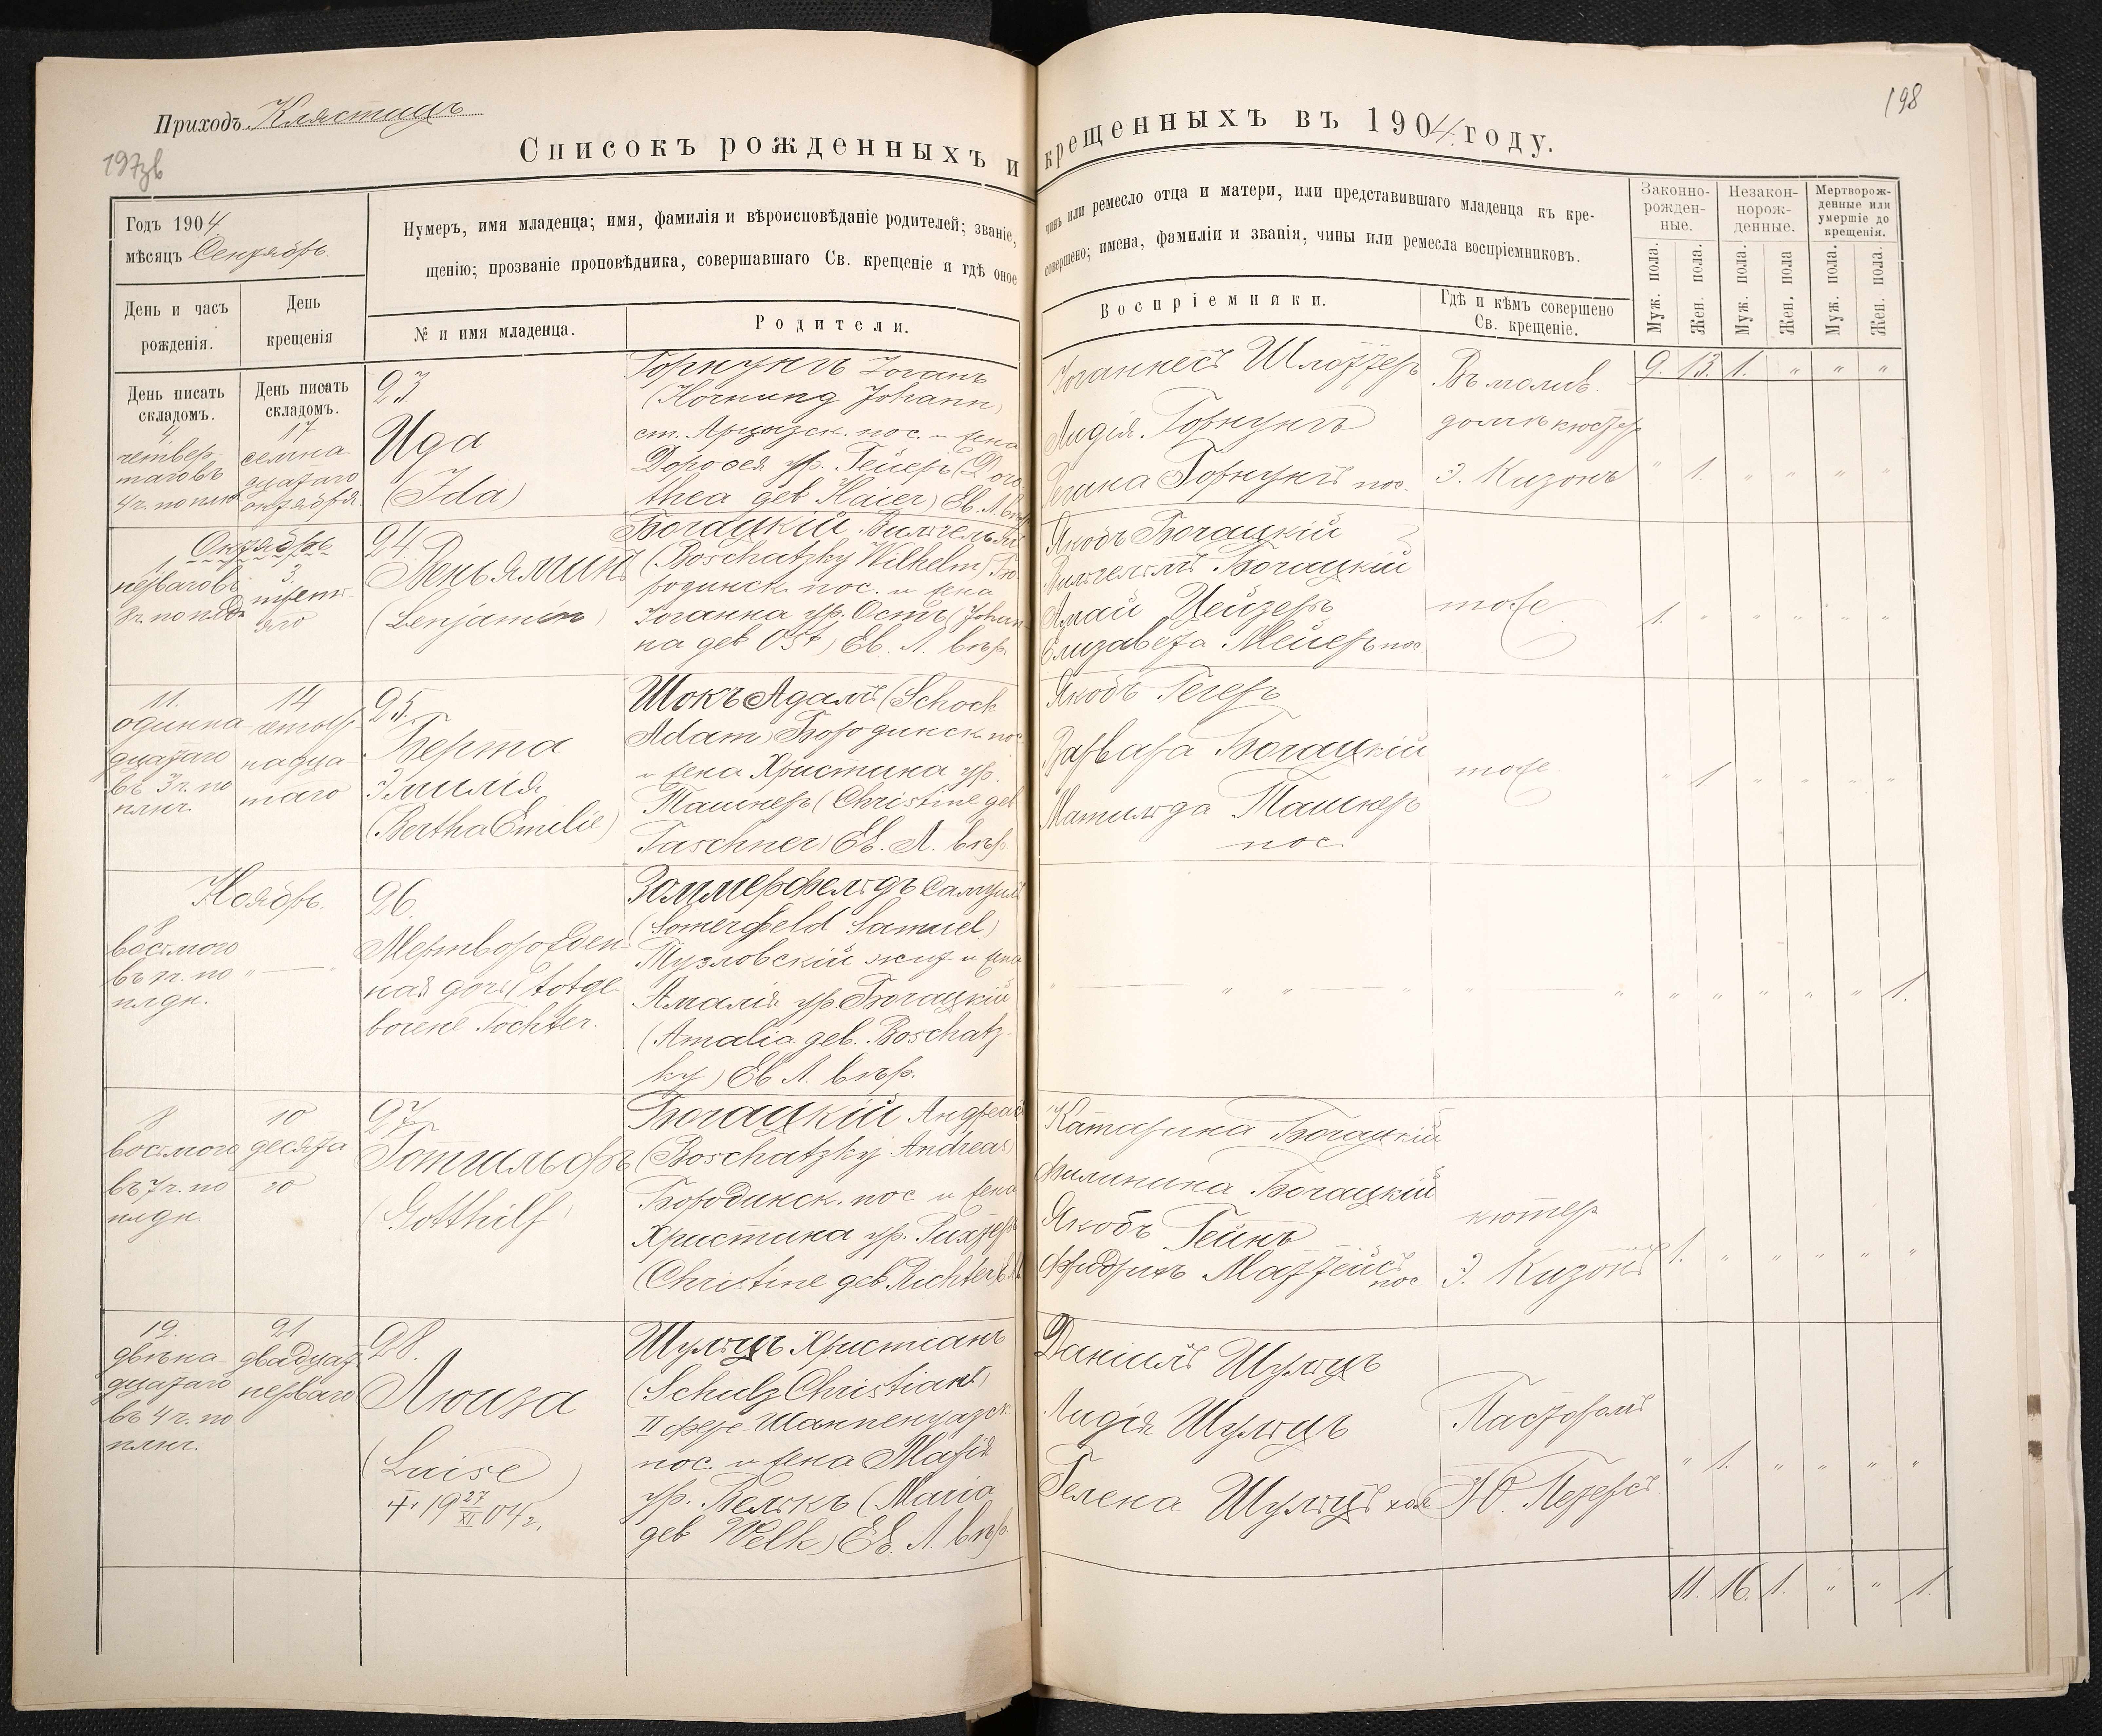 Приходъ Клястицъ
197зв
198
Списокъ рожденныхъ и крещенныхъ въ 1904 году.
Годъ 1904
мѣсяцъ Сентябрь.
Нумеръ, имя младенца; имя, фамилія и вѣроисповѣданіе родителей; званіе, чинъ или ремесло отца и матери, или представившаго младенца къ кре-
щенію; прозваніе проповѣдника, совершавшаго Св. крещеніе и гдѣ оное совершено; имена, фамиліи и званія, чины или ремесла воспріемниковъ.
Законно-
рожден-
ные.
Незакон-
норож-
денные.
Мертворож-
денные или
умершіе до
крещенія.
День и часъ
рожденія.
День
крещенія.
№ и имя младенца.
Родители.
Воспріемники.
Гдѣ и кѣмъ совершено
Св. крещеніе.
Муж. пола.
Жен. пола.
Муж. пола.
Жен. пола
Муж. пола.
Жен. пола.
День писать
складомъ.
День писать
складомъ.
9. 13. 1. " " "
4.
четвер-
таго въ
4 ч. по плн.
17
семна-
дцатаго
октября
23
Ида
(Ida)
Горнунгъ Іоганъ
(Hornung Johann)
ст. Арцызск. пос. и жена
Доротея ур. Гейеръ (Doro-
thea geb Haier) Ев. Л. вѣр.
Іоганнесъ Шлоттеръ
Лидія Горнунгъ
Регина Горнунгъ пос.
Въ молит.
домѣ кюстеръ
Э. Кизонъ
" 1. " " " "
Октябрь
1.
перваго въ
8 ч. по плд.
3.
треть-
яго
24.
Веньяминъ
(Benjamin)
Богацкій Вильгельмъ
(Boschatzky Wilhelm) Бо-
родинск. пос. и жена
Іоганна ур. Остъ (Johan-
na geb Ost) Ев. Л. вѣр.
Якобъ Богацкій
Вильгельмъ Богацкій
Амай Цейзеръ
Елизавета Мейеръ пос
тоже
1. " " " " "
11.
одинна
дцатаго
въ 3 ч. по
плнч.
14
четыр-
надца-
таго
25.
Берта
Эмилія
(Bertha Emilie)
Шокъ Адамъ (Schock
Adam) Бородинск. пос.
и жена Христина ур.
Ташнеръ (Christine geb
Taschner) Ев. Л. вѣр.
Якобъ Гегеръ
Варвара Богацкій
Матильда Ташнеръ
пос.
тоже.
" 1. " " " "
Ноябрь.
8
восьмого
въ 7 ч. по
плдн.
" — "
26.
Мертворожден-
ная дочь (totge-
borene Tochter.
Зоммерфельдъ Самуилъ
(Somerfeld Samuel)
Тузловскій жит. и жена
Амалія ур. Богацкій
(Amalia geb. Boschatz-
ky) Ев Л. вѣр.
" — " " — " " — " " " " " " 1.
8
восьмого
въ 7 ч. по
плдн
10
десята
го
27
Готгильфъ
(Gotthilf)
Богацкій Андреасъ
(Boschatzky Andreas)
Бородинск. пос и жена
Христина ур. Рихтеръ
(Christine geb Richter)
Катарина Богацкій
Филипина Богацкій
Якобъ Гейнъ
Фридрихъ Маттейсъ
пос
кюстер
Э. Кизонъ
1. " " " " "
12.
двѣна-
дцатаго
въ 4 ч. по
плнч.
21
двадцат
перваго
28.
Люиза
(Luise)
+ 19 27/XI 04 г.
Шульцъ Христіанъ
(Schulz Christian)
II Фере-Шампенуазск.
пос. и жена Марія
ур. Велькъ (Maria
geb Welk) Ев. Л. вѣр.
Даніилъ Шульцъ
Лидія Шульцъ
Гелена Шульцъ хол
Пасторомъ
Ю. Петерсъ
" 1. " " " "
11. 16. 1. " " 1.